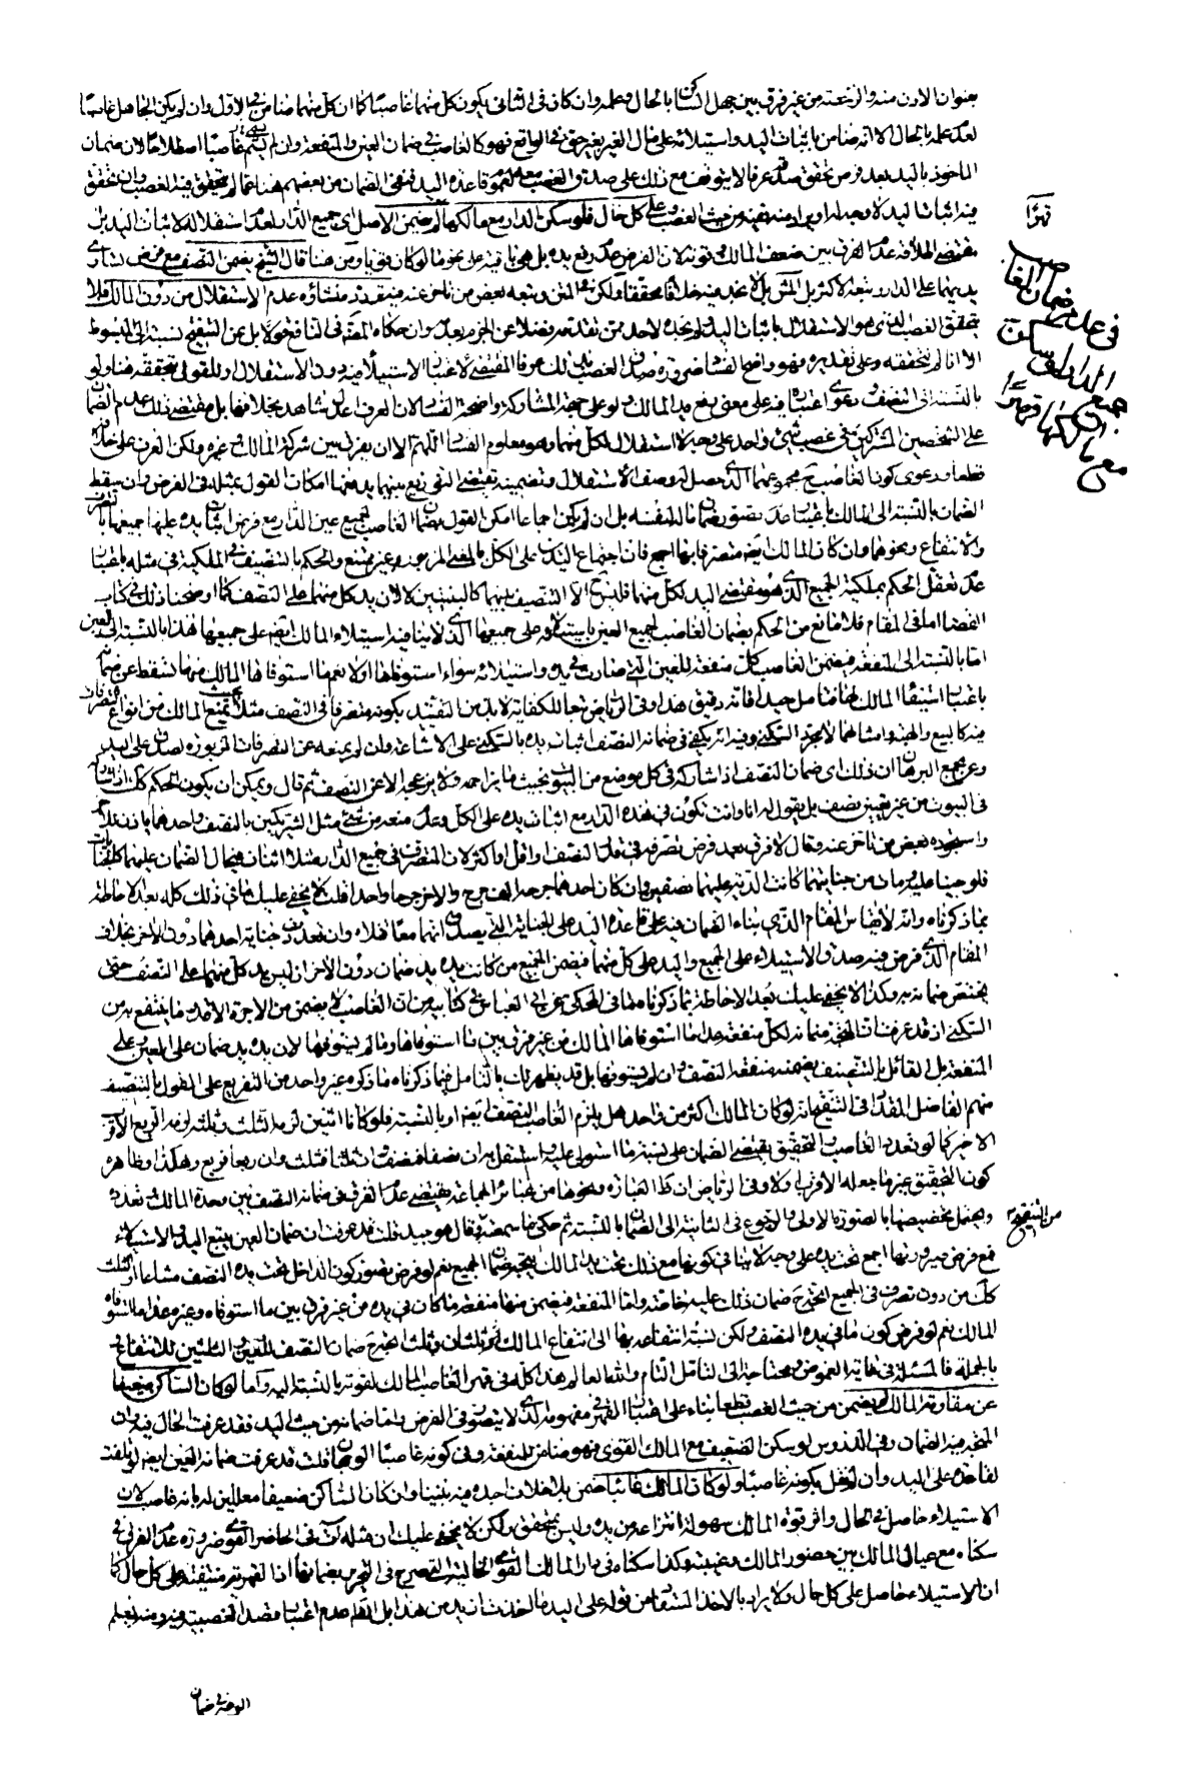 بعنوان الاذن منه والرخصة من غير فرق بين جهل الساكن بالحال وعلمه وان كان في الثاني يكون كل منهما غاصبا كما ان كل منهما ضامن في الاول وان لم يكن الجاهل غاصبا
لعدم علمه بالحال الا انه ضامن باثبات اليد واستيلائه على مال الغير بغير حق في الواقع فهو كالغاصب في ضمان العين والمنفعة وان لم يسم غاصبا اصطلاحا لان ضمان
الماخوذ باليد بعد فرض تحقق صدقه عرفا لا يتوقف مع ذلك على صدق الغصب معه لعموم قاعدة اليد فنفى الضمان من بعضهم هنا لم يتحقق فيه الغصب وان تحقق
فيه اثبات اليد لا وجه له او يراد منه نفيه من حيث الغصب وعلى كل حال فلو سكن الدار مع مالكها لم يضمن الاصل اي جميع الدار لعدم استقلاله لاثبات اليد بل
مقتضى اطلاقه عدم الفرق بين ضعف المالك وقوته لان الفرض عدم رفع يده بل هو باقية على نحو ما لو كان قويا ومن هنا قال الشيخ يضمن النصف مع فرض تساوي
يديهما على الدار وتبعه الاكثر بل المش بل لا نجد فيه خلافا محققا ولكن في المتن وتبعه بعض من تاخر عنه فيه تردد منشاؤه عدم الاستقلال من دون المالك فلا
يتحقق الغصب الذي هو الاستقلال باثبات اليد ولم نجده لاحد ممن تقدمه فضلا عن الجزم بعدمه وان حكاه المقداد في النافع قولا بل عن التنقيح نسبته الى المبسوط
الا انا لم نتحققه وعلى تقديره فهو واضح الفساد ضرورة صدق الغصب بذلك عرفا المقتضي لاعتبار الاستيلاء فيه دون الاستقلال او للقول بتحققه هنا ولو
بالنسبة الى النصف ودعوى اعتباره فيه على معنى رفع يد المالك ولو على جهة المشاركة واضحة الفساد لان العرف اعدل شاهد بخلافها بل مقتضى ذلك عدم الضمان
على الشخصين المشتركين في غصب شيء واحد على وجه لا استقلال لكل منهما وهو معلوم الفساد اللهم الا ان يفرق بين شركة المالك وغيره ولكن العرف على خلافه
قطعا ودعوى كون الغاصب ح مجموعهما الذي حصل له وصف الاستقلال وتضمينه يقتضي التوزيع بينهما يدفعها امكان القول بمثله في الفرض وان سقط
الضمان بالنسبة الى المالك باعتبار عدم تصور ضمان ماله لنفسه بل ان لم يكن اجماعا امكن القول بضمان الغاصب لجميع عين الدار مع فرض اثبات يده عليها جميعها بالتصرف
والانتفاع ونحوهما وان كان المالك ايضا متصرفا بها اجمع فان اجتماع اليدين على الكل بالمعنى المزبور غير ممتنع والحكم بالتنصيف في الملكية في مثله باعتبار
عدم تعقل الحكم بملكية الجميع الذي هو مقتضى اليد لكل منهما فليس ح الا التنصيف بينهما كالبينتين لا لان يد كل منهما على النصف كما اوضحنا ذلك في كتاب
القضا اما في المقام فلا مانع من الحكم بضمان الغاصب لجميع العين باستيلائه على جميعها الذي لا ينافيه استيلاء المالك ايضا على جميعها هذا بالنسبة الى العين
اما بالنسبة الى المنفعة فيضمن الغاصب كل منفعة للعين التي صارت في يده واستيلائه سواء استوفاها اولا نعم ما استوفاها المالك منها تسقط عن ضمانه
باعتبار استيفاء المالك لها فتامل جيدا فانه دقيق هذا وفي الرياض تبعا للكفاية لابد من التقييد بكونه متصرفا في النصف مثلا بحيث يمنع المالك من انواع التصرفات
فيه كالبيع والهبة وامثالهما لا مجرد السكنى وفيه انه يكفي في ضمانه النصف اثبات يده بالسكنى على الاشاعة وان لم يمنعه عن التصرفات المزبورة لصدق على اليد
وعن مجمع البرهان ان ذلك اي ضمان النصف اذا شاركه في كل موضع من البيوت بحيث ما يزاحمه ولا يزعجه الا عن النصف ثم قال ويمكن ان يكون الحكم كذلك اذا شاركه
في البيوت من غير تعيين نصف بل يقول له انا وانت نكون في هذه الدار مع اثبات يده على الكل وعدم منعه من شيء مثل الشريكين بالنصف واحدهما باذن الاخر
واستجوده بعض من تاخر عنه وقال لا فرق بعد فرض تصرفه في قدر النصف او اقل او اكثر لان المتصرف في جميع الدار مثلا اثنان فيحال الضمان عليهما كالجنايات
فلو جنيا عليه ومات من جنايتهما كانت الدية عليهما نصفين وان كان احدهما جرحه الف جرح والاخر جرحا واحدا قلت لا يخفى عليك ما في ذلك كله بعد الاحاطة
بما ذكرناه وانه لا يقاس المقام الذي بناء الضمان فيه على قاعدة اليد على الجناية التي يصدق انهما معا قتلاه وان تعددت جناية احدهما دون الاخر بخلاف
المقام الذي فرض فيه صدق الاستيلاء على الجميع واليد على كل منهما فيضمن الجميع من كانت يده يد ضمان دون الاخر اذ ليس يد كل منهما على النصف حتى
يختص ضمانه به وكذا لا يخفى عليك بعد الاحاطة بما ذكرناه ما في المحكي عن ابي العباس في كتابيه من ان الغاصب لا يضمن من الاجرة الا قدر ما ينتفع به من
السكنى اذ قد عرفت ان المتجه ضمانه لكل منفعة عدا ما استوفاها المالك من غير فرق بين ما استوفاها وما لم يستوفها لان يده يد ضمان على العين وعلى
المنفعة بل القائل بالتنصيف يضمنه منفعة النصف وان لم يستوفها بل قد يظهر لك بالتامل فيما ذكرناه ما ذكره غير واحد من التفريع على القول بالتنصيف
منهم الفاضل المقداد في التنقيح انه لو كان المالك اكثر من واحد هل يلزم الغاصب النصف ايضا او بالنسبة فلو كانا اثنين لزمه الثلث وثلثة لزمه الربع الاقرب
الاخير كما لو تعدد الغاصب والتحقيق يقتضي الضمان على نسبة ما استولى عليه واستقل به ان نصفا فنصف وان ثلثا فثلث وان ربعا فربع وهكذا وظاهره
كون التحقيق غير ما جعله الاقرب اولا وفي الرياض ان ظ العبارة ونحوها من عبائر الجماعة يقتضي عدم الفرق في ضمانه النصف بين وحدة المالك وتعدده
ويحتمل تخصيصها بالصورة الاولى والرجوع في الثانية الى الضمان بالنسبة ثم حكى ما سمعته وقال هو جيد قلت قد عرفت ان ضمان العين يتبع اليد والاستيلاء
فمع فرض صيرورتها اجمع تحت يده على وجه لا ينافي كونها مع ذلك تحت يد المالك يتجه ضمان الجميع نعم لو فرض تصور كون الداخل تحت يده النصف مشاعا او الثلث
كك من دون تصرف في الجميع اتجه ح ضمان ذلك عليه خاصة واما المنفعة فيضمن منها منفعة ما كان في يده من غير فرق بين ما استوفاه وغيره عدا ما استوفاه
المالك نعم لو فرض كون ما في يده النصف ولكن نسبة انتفاعه بها الى انتفاع المالك ثلثان وثلث اتجه ح ضمان النصف للعين والثلثين للانتفاع
بالجملة فالمسئلة في غاية الغموض ومحتاجة الى التامل التام والله العالم هذا كله في قهر الغاصب المالك لقوته بالنسبة اليه واما لو كان الساكن ضعيفا
عن مقاومة المالك لم يضمن من حيث الغصب قطعا بناء على اعتبار القهر في مفهومه الذي لا يتصور في الفرض واما ضمانه من حيث اليد فقد عرفت الحال فيه وان
المتجه فيه الضمان وفي الدروس لو سكن الضعيف مع المالك القوي فهو ضامن للمنفعة وفي كونه غاصبا الوجهان قلت قد عرفت ضمانه العين ايضا لو تلفت
لقاعدة على اليد وان لم نقل بكونه غاصبا ولو كان المالك غائبا ضمن بلا خلاف اجده فيه بيننا وان كان الساكن ضعيفا معللين له بانه غاصب لان
الاستيلاء حاصل في الحال واثر قوة المالك سهولة انتزاعه من يده وليس بمتحقق ولكن لا يخفى عليك ان مثله آت في الحاضر القوي ضرورة عدم الفرق في
سكناه مع عيال المالك بين حضور المالك وغيبته وكذا سكناه في دار المالك القوي الخالية التصريح في التحرير بضمانها اذ القهر متيقنة على كل حال كما
ان الاستيلاء حاصل على كل حال ولا يراد بالاخذ المستفاد من قوله على اليد ما اخذت ازيد من هذا بل الظاهر عدم اعتبار قصد الغصبية فيه ومنه يعلم
قهرا
في عدم ضمان الغاصب
جميع الدار لو سكن
مع مالكها قهرا
من التنقيح
الوجه في ضمان